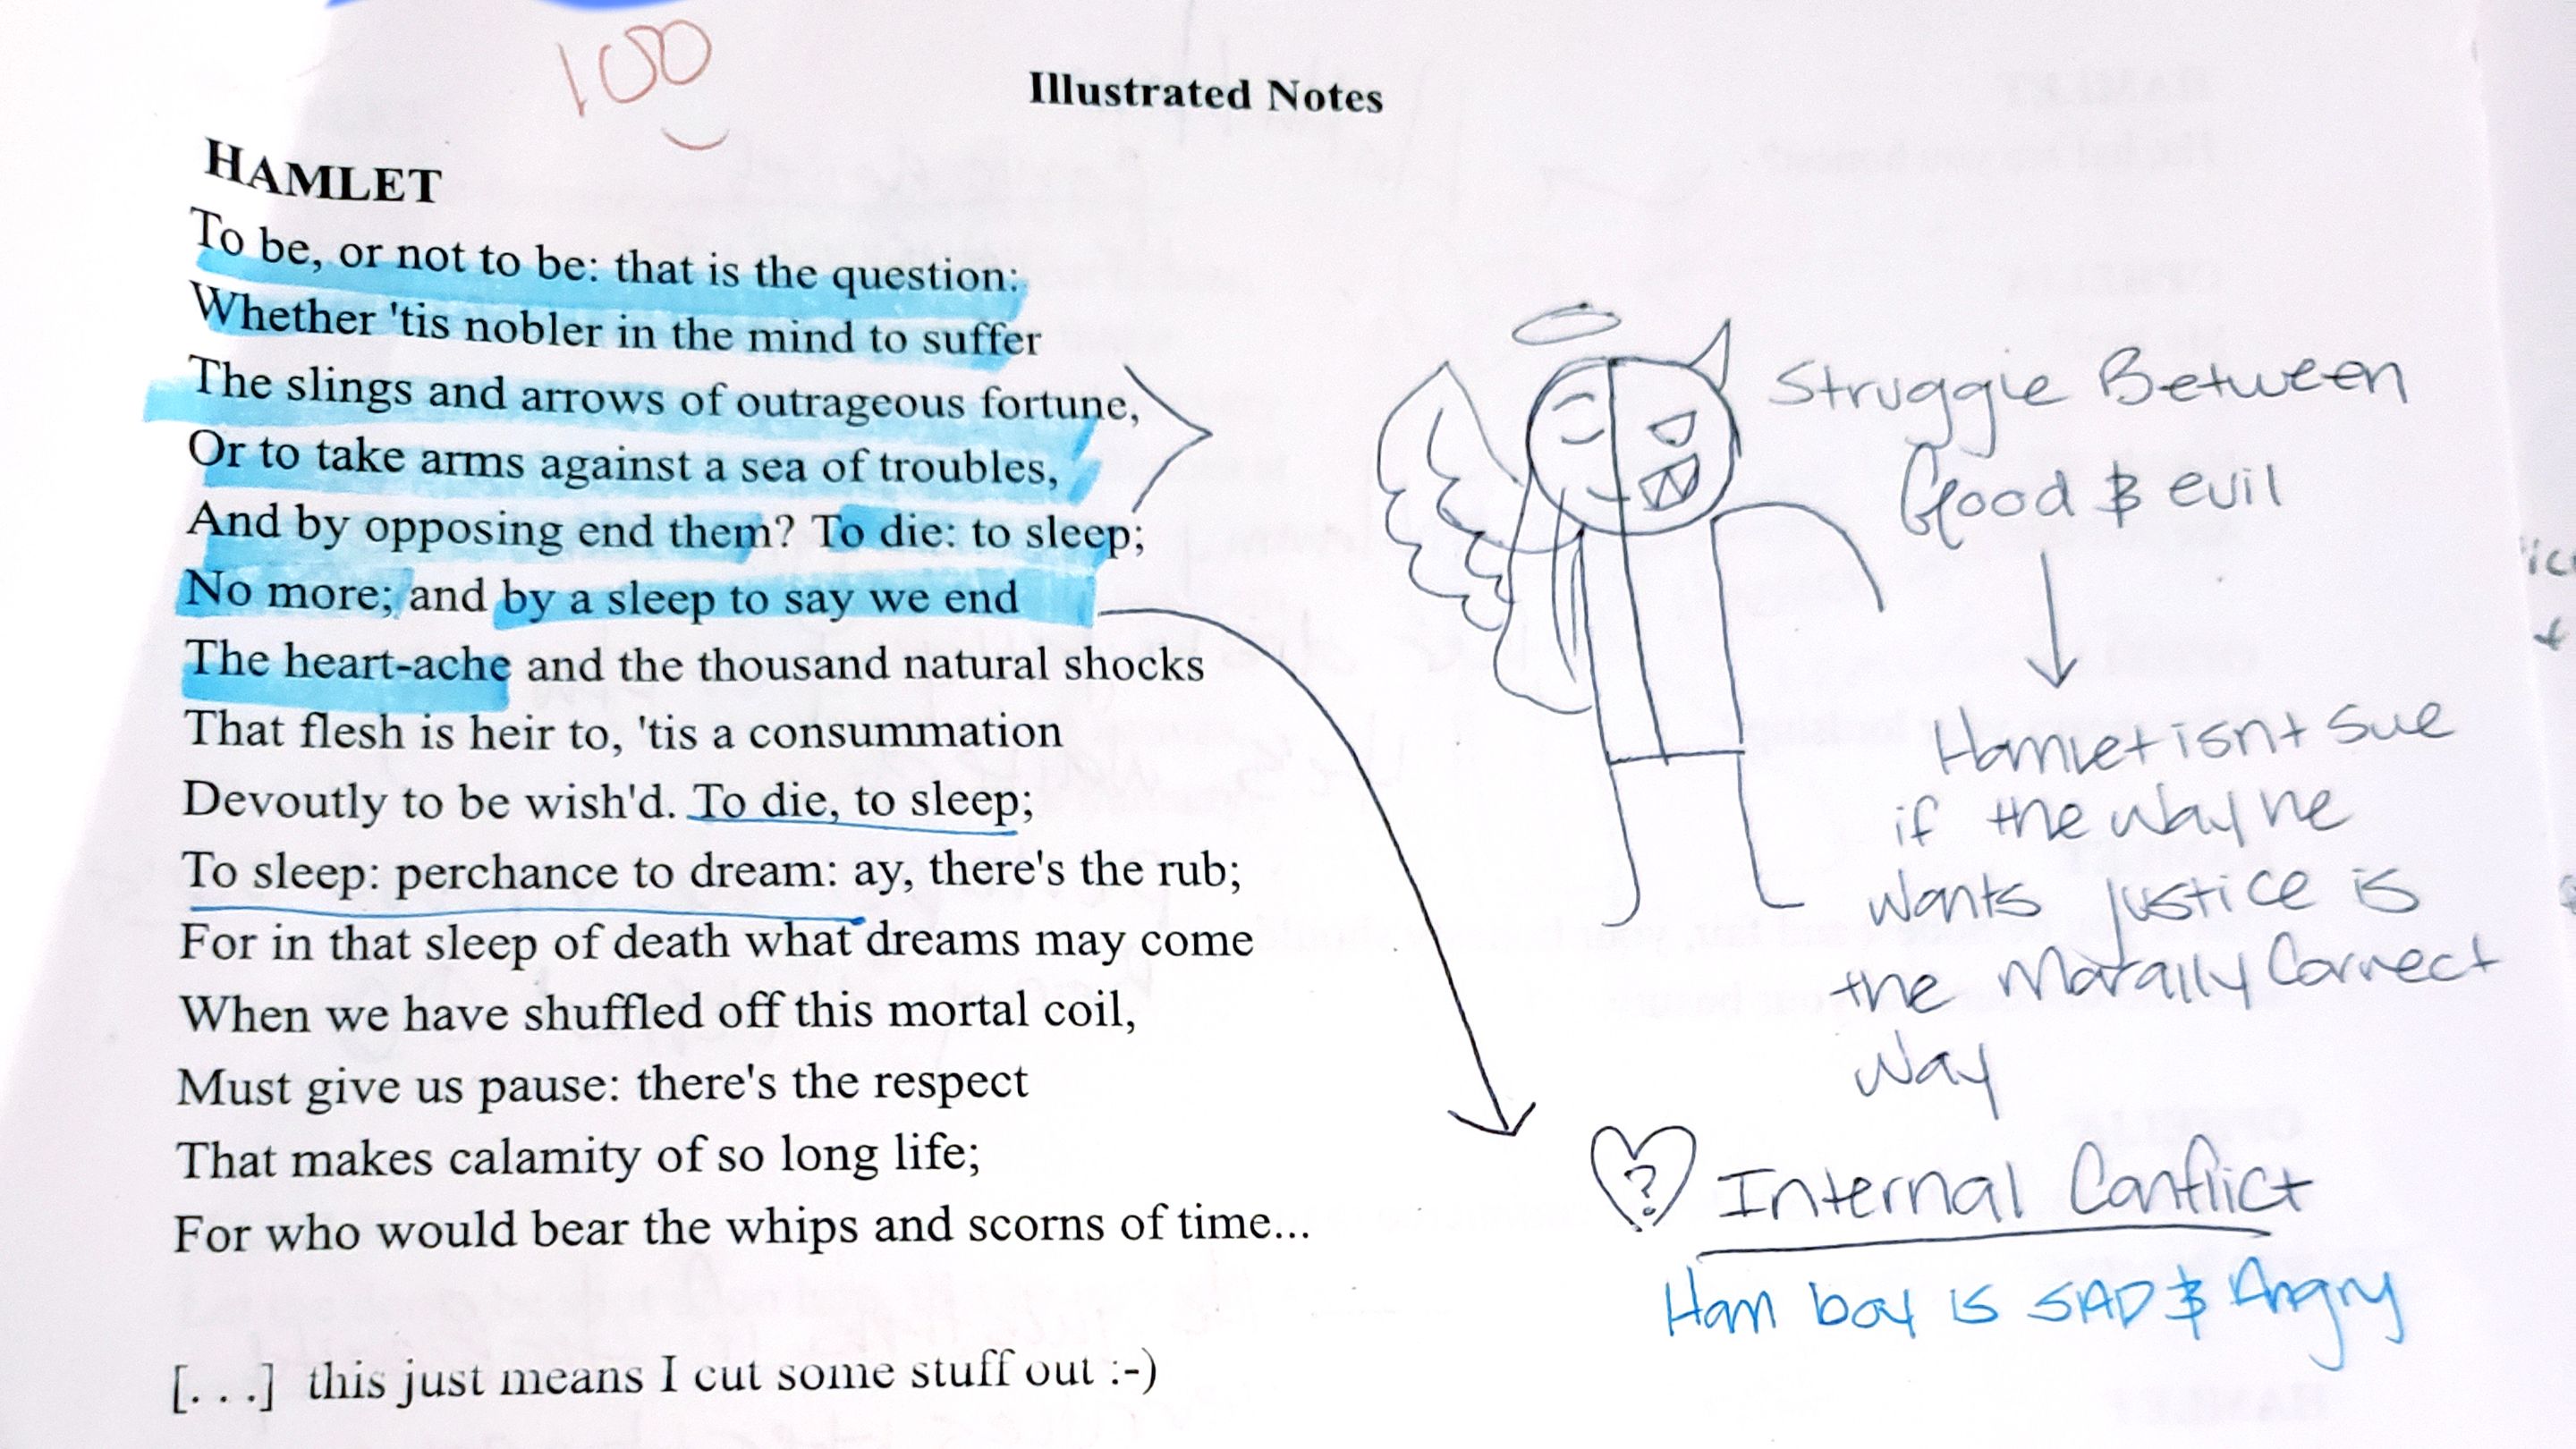 100
Illustrated Notes
HAMLET
To be, or not to be: that is the question:
Whether 'tis nobler in the mind to suffer
The slings and arrows of outrageous fortune,
Or to take arms against a sea of troubles,
And by opposing end them? To die: to sleep;
No more; and by a sleep to say we end
The heart-ache and the thousand natural shocks
That flesh is heir to, 'tis a consummation
Devoutly to be wish'd. To die, to sleep;
To sleep: perchance to dream: ay, there's the rub;
For in that sleep of death what dreams may come
When we have shuffled off this mortal coil,
Must give us pause: there's the respect
That makes calamity of so long life;
For who would bear the whips and scorns of time...
[. . .] this just means I cut some stuff out :-)
Struggle Between
Good & evil
Hamlet isnt Sue
if the way he
wants justice is
the Morally Correct
way
? Internal Conflict
Ham boy is SAD & Angry